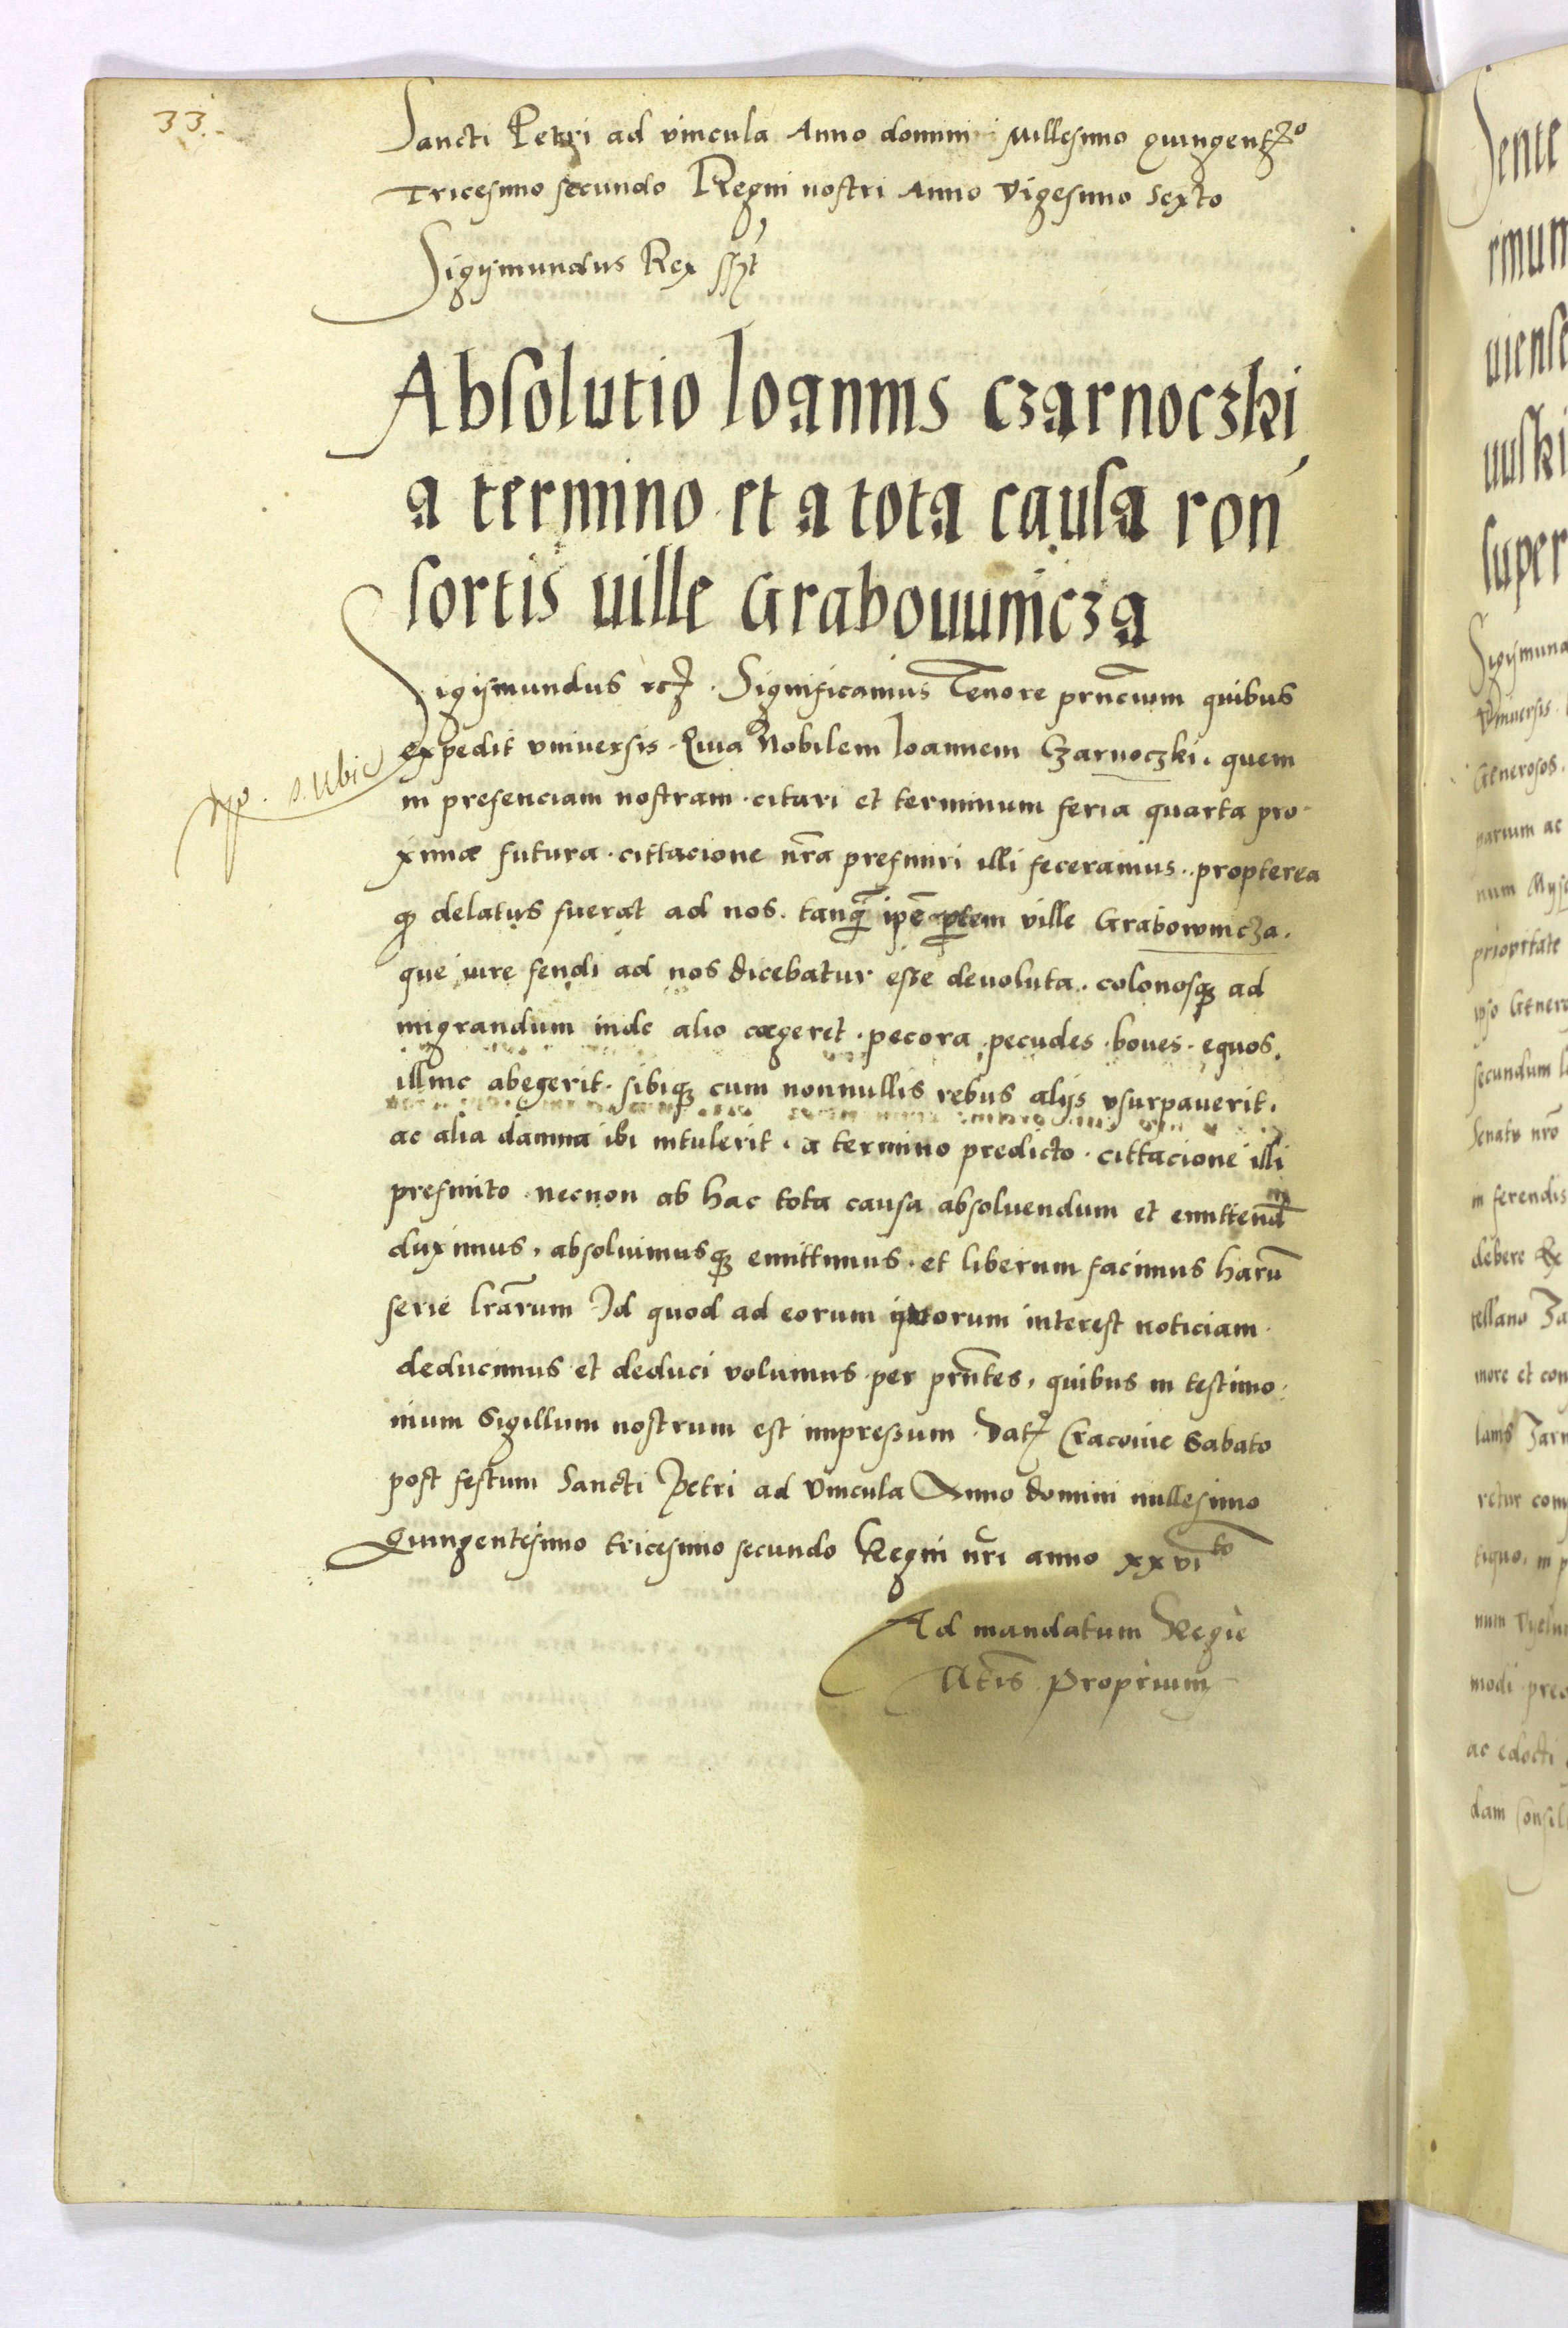 33.
Sancti Petri ad vincula Anno domini Millesimo quingentz̃o
Tricesimo secundo Regni nostri Anno Vigesimo Sexto
Sigismundus Rex sszt
Absolutio Ioannis Czarnoczki
a termino et a tota causa ron
sortis uille Grabouuincza
Sigismundus etcz. Significamus Tenore prñcium quibus
expedit vniuersis. Quia Nobilem Ioannem Czarnoczki. quem
in presenciam nostram. citari et terminum feria quarta pro
xima futura. cittacione nr̃a prefiniri illi feceramus. propterea
q delatus fuerat ad nos. tanq̃ ip̃e ptem ville Grabowincza.
que iure feudi ad nos dicebatur esse deuoluta. colonosqz ad
migrandum inde alio coegeret. pecora. pecudes. boues. equos.
illinc abegerit. sibiqz cum nonnullis rebus alijs vsurpauerit.
ac alia damna ibi intulerit. a termino predicto. cittacione illi
prefinito. necnon ab hac tota causa absoluendum et emittend̃m
duximus. absoluimusqz emittimus. et liberum facimus harũ
serie lr̃arum Id quod ad eorum quorum interest noticiam.
deducimus et deduci volumus per prñtes. quibus in testimo
nium Sigillum nostrum est impressum. Datz Cracouie Sabato
post festum Sancti Petri ad Vincula Anno domini millesimo
Quingentesimo tricesimo secundo Regni nr̃i anno xxvi to
Ad mandatum Regie
Mt̃is proprium
s. Ubic
Sente
rimum
uiense
uuski
super
Sigismund
Vniuersis
Generosos.
narium ac
prioritate
ipso Genero
secundum
Senatu nr̃o
in ferendis
debere
tellano Za
more et con
retur com
tiquo. in p
modi
ac edocti
dam Consil